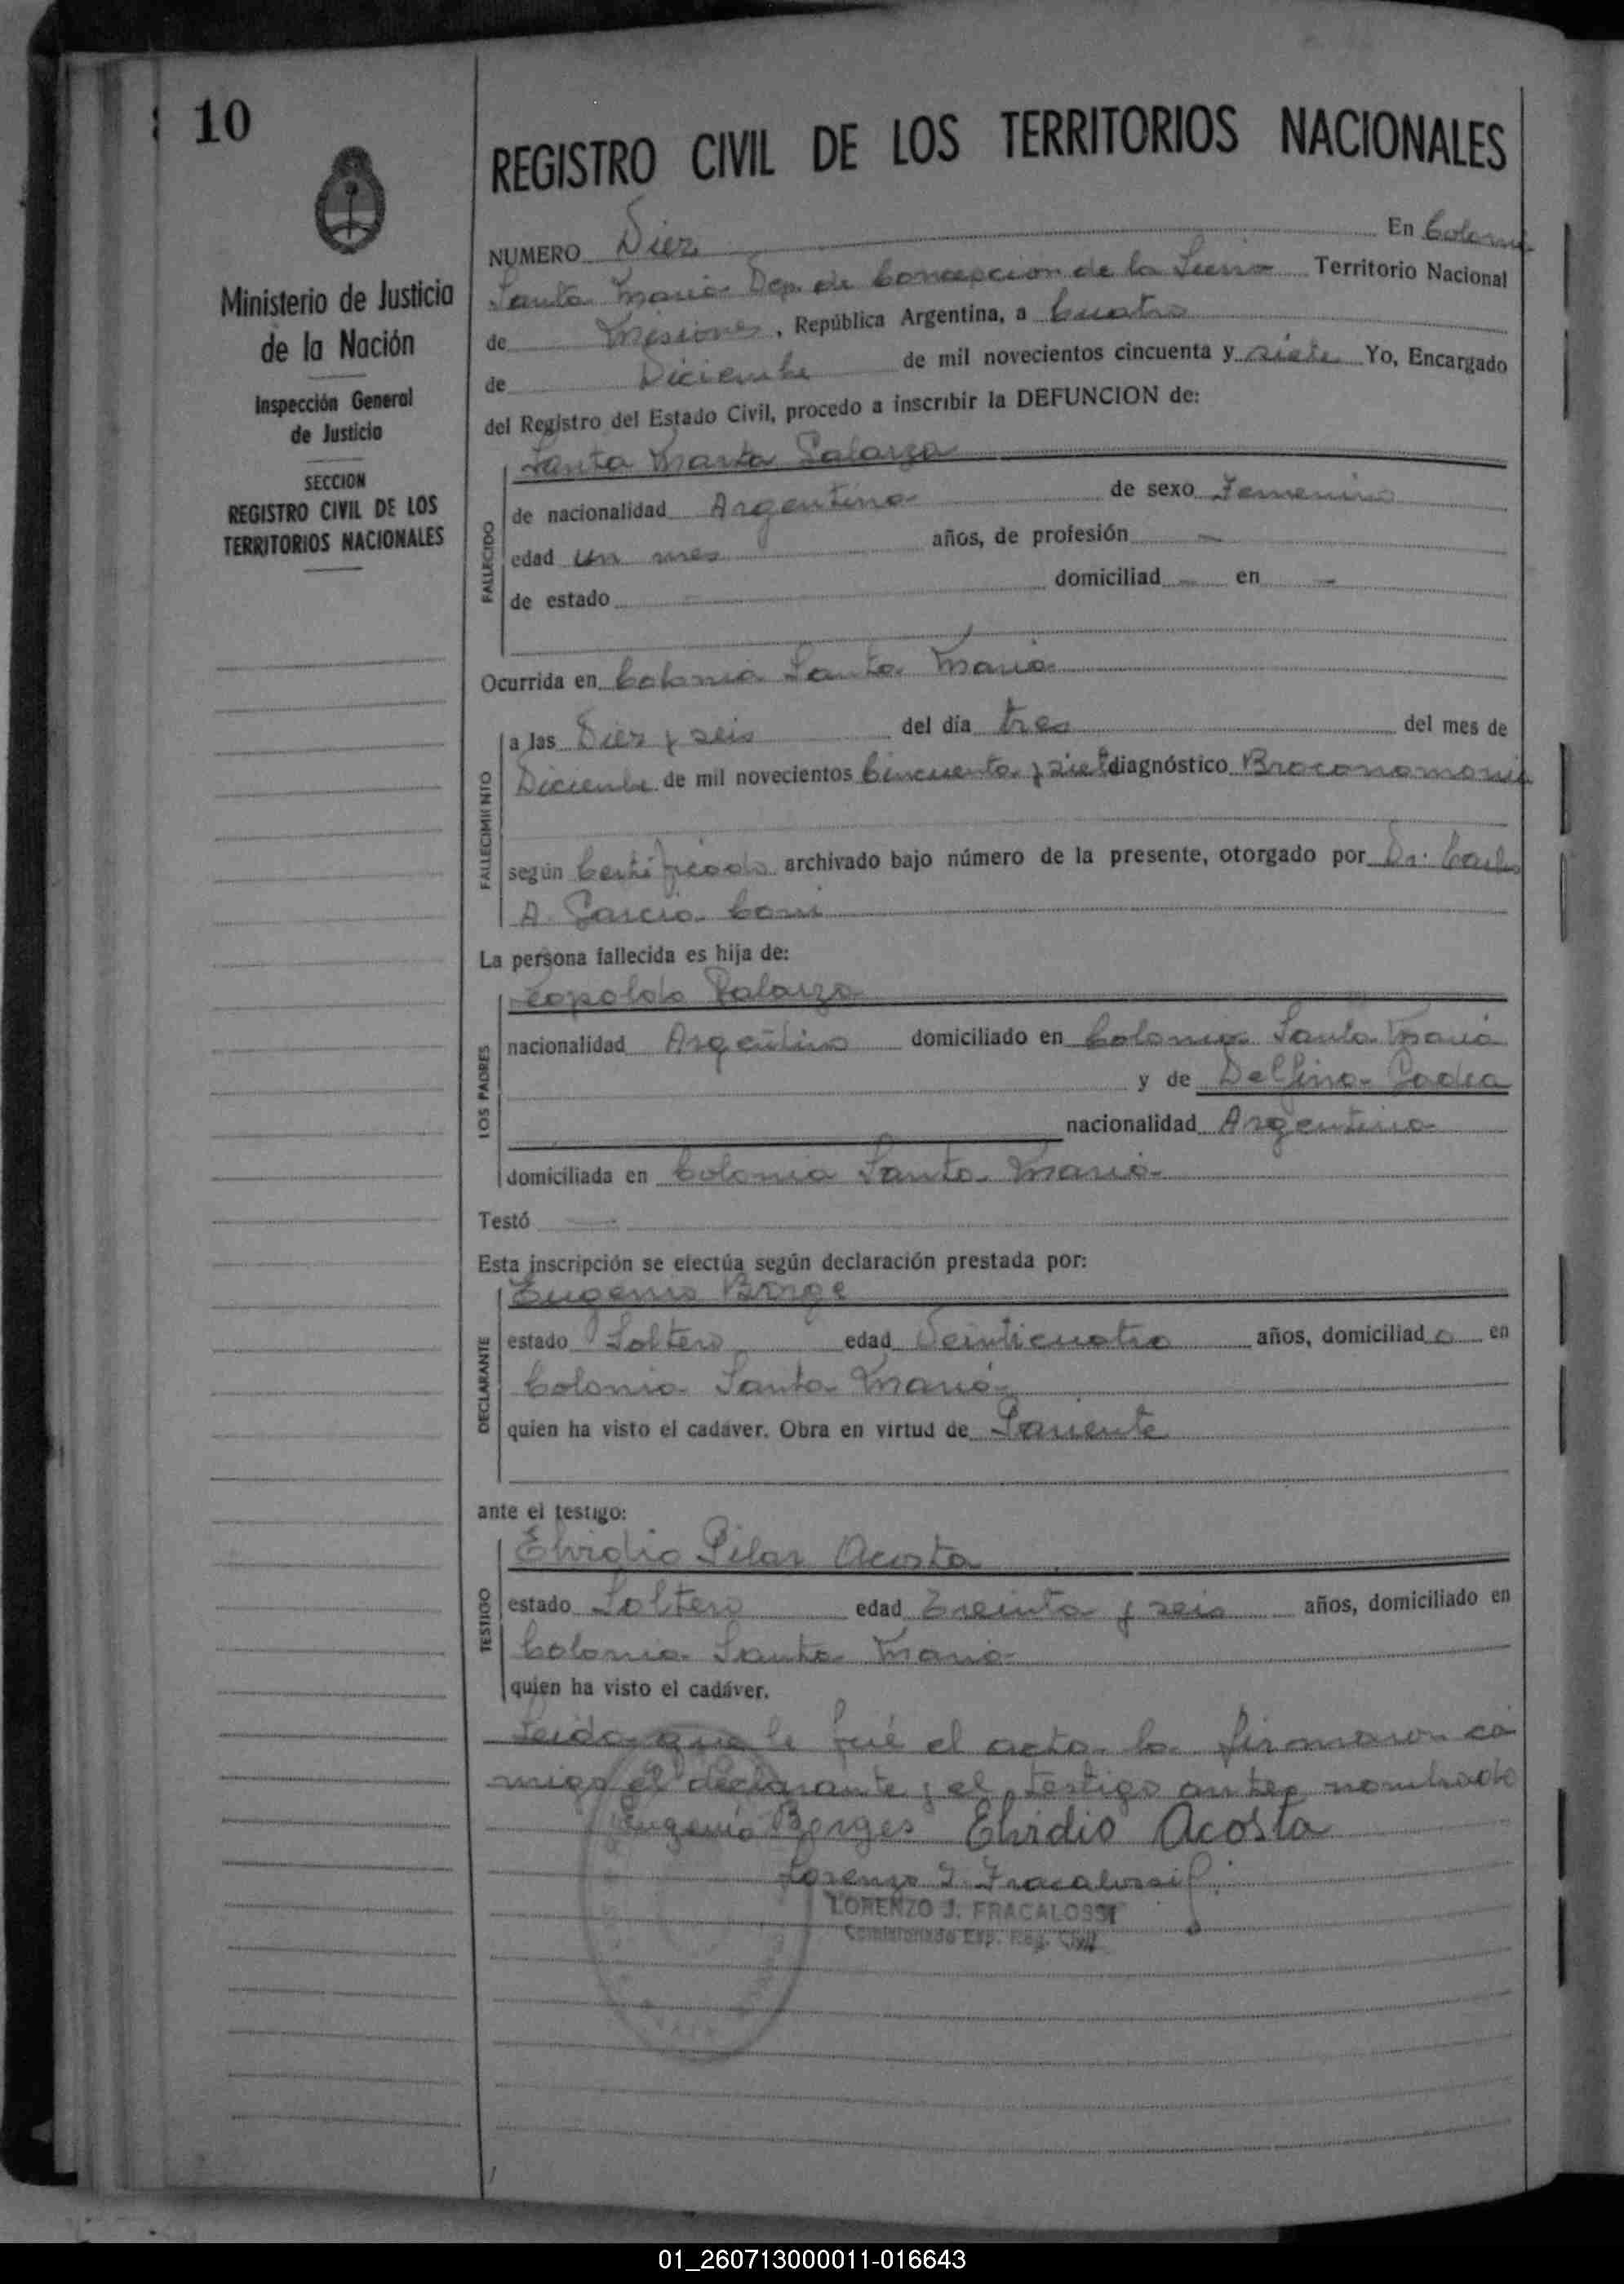 10
Ministerio de Justicia
de la Nación
Inspección General
de Justicia
SECCION
REGISTRO CIVIL DE LOS
TERRITORIOS NACIONALES
REGISTRO CIVIL DE LOS TERRITORIOS NACIONALES
NUMERO Diez En Colonia
Santa Maria Dep. de Concepcion de la Sierra Territorio Nacional
de Misiones, República Argentina, a Cuatro
de Diciembre de mil novecientos cincuenta y siete Yo, Encargado
del Registro del Estado Civil, procedo a inscribir la DEFUNCION de:
Santa Marta Galarza
FALLECIDO
de nacionalidad Argentina de sexo Femenino
edad un mes años, de profesión -
de estado - domiciliad - en -
Ocurrida en Colonia Santa Maria
FALLECIMIENTO
a las Diez y seis del día tres del mes de
Diciembre de mil novecientos Cincuenta y siete diagnóstico Broconomonia
según Certificado archivado bajo número de la presente, otorgado por Dr. Carlos
A. Garcia
La persona fallecida es hija de:
LOS PADRES
Leopoldo Galarza
nacionalidad Argentino domiciliado en Colonia Santa Maria
y de Delfina
nacionalidad Argentina
domiciliada en Colonia Santa Maria
Testó -
Esta inscripción se efectúa según declaración prestada por:
DECLARANTE
Eugenio Borge
estado Soltero edad Veinticuatro años, domiciliado en
Colonia Santa Maria
quien ha visto el cadáver. Obra en virtud de Pariente
ante el testigo:
TESTIGO
Elvidio Pilar Acosta
estado Soltero edad Treinta y seis años, domiciliado en
Colonia Santa Maria
quien ha visto el cadáver.
Leida que le fué el acta la firmaron co
migo el declarante y el testigo antes nombrado
Eugenio Borges Elvidio Acosta
Lorenzo J. Fracalossi
LORENZO J. FRACALOSSI
Comisionado Esp. Reg. Civil
01_260713000011-016643